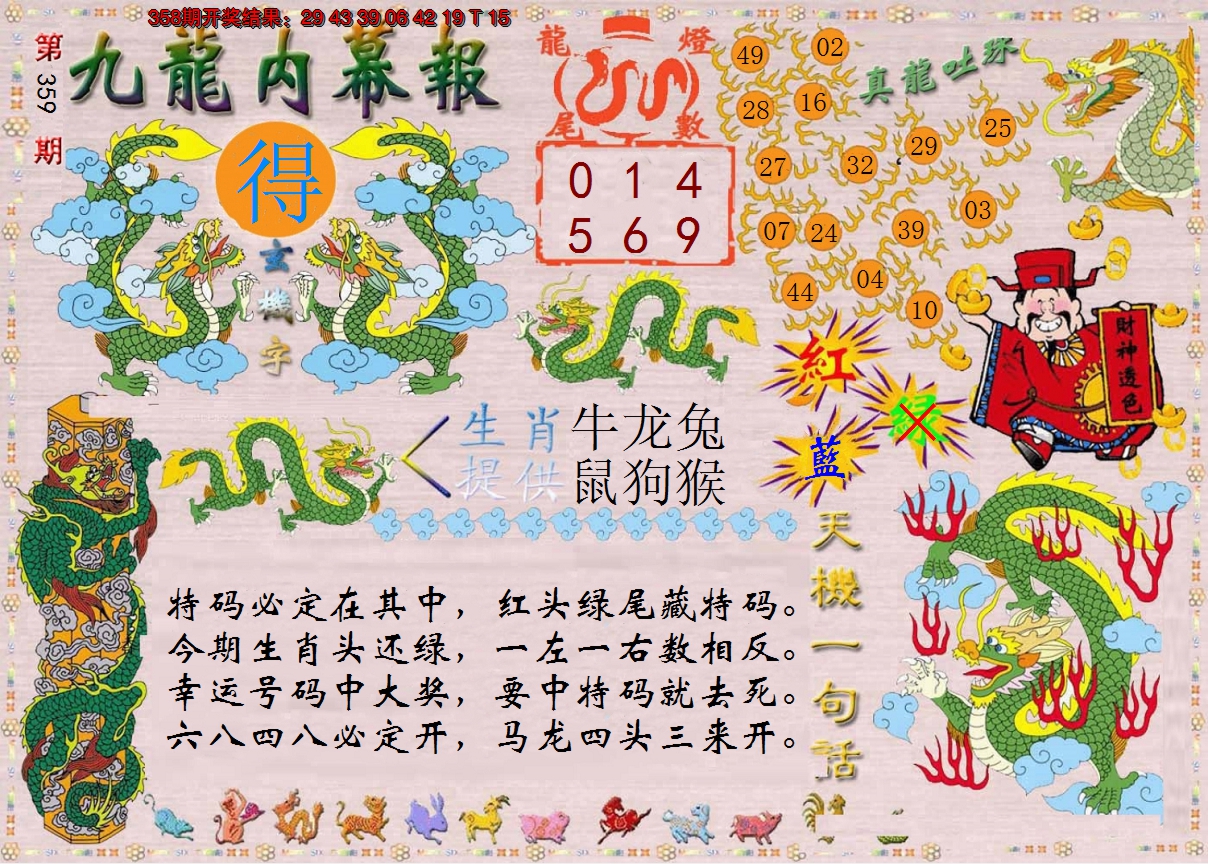 358期开奖结果：29 43 39 06 42 19 T 15
第
359
期
九龍内幕報
得
玄
機
字
龍 燈
尾 數
0 1 4
5 6 9
真龍吐珠
49
02
28
16
29
25
27
32
03
07
24
39
44
04
10
財神透色
紅
绿
藍
生肖 牛龙兔
提供 鼠狗猴
天機一句話
特码必定在其中，红头绿尾藏特码。
今期生肖头还绿，一左一右数相反。
幸运号码中大奖，要中特码就去死。
六八四八必定开，马龙四头三来开。